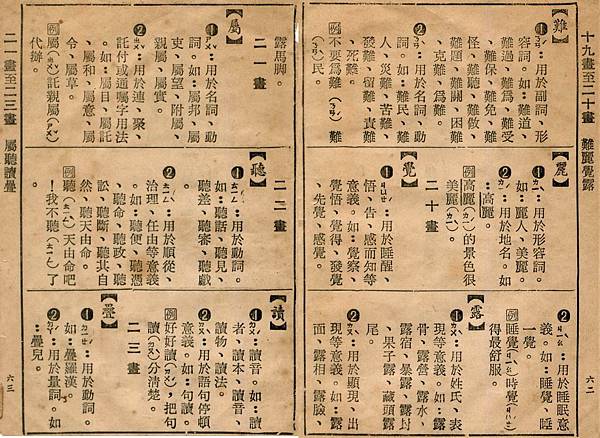 十九畫至二十畫 難麗覺露
【難】
❶ㄋㄢˊ：用於副詞、形
容詞。如：難道、
難過、難為、難受
、難保、難免、難
怪、難聽、難敵、
難題、難關、困難
、克難、為難。
❷ㄋㄢˋ：用於名詞、動
詞。如：難民、難
人、災難、苦難、
發難、留難、責難
、死難。
例不要為難（ㄋㄢˊ）難
（ㄋㄢˋ）民。
【麗】
❶ㄌㄧˋ：用於形容詞。
如：麗人、美麗。
❷ㄌㄧˊ：用於地名。如
：高麗。
例高麗（ㄌㄧˊ）的景色很
美麗（ㄌㄧˋ）。
二十畫
【覺】
❶ㄐㄩㄝˊ：用於睡醒、
悟、告、感而知等
意義。如：覺察、
覺悟、覺得、發覺
、先覺、感覺。
❷ㄐㄧㄠˋ：用於睡眠意
義。如：睡覺、睡
一覺。
例睡覺（ㄐㄧㄠˋ）時覺（ㄐㄩㄝˊ）
得最舒服。
【露】
❶ㄌㄨˋ：用於姓氏、表
現等意義。如：露
骨、露營、露水、
露宿、暴露、露封
、果子露、藏頭露
尾。
❷ㄌㄡˋ：用於顯現、出
現等意義。如：露
面、露相、露臉、
六二
露馬脚。
二一畫
【屬】
❶ㄕㄨˇ：用於名詞、動
詞。如：屬邦、屬
吏、屬望、附屬、
親屬、屬實。
❷ㄓㄨˇ：用於連、聚、
託付或通囑字用法
。如：屬目、屬託
、屬和、屬意、屬
令、屬草。
例屬（ㄓㄨˇ）託親屬（ㄕㄨˇ）
代辦。
二二畫
【聽】
❶ㄊㄧㄥ：用於動詞。
如：聽話、聽見、
聽差、聽審、聽戲
❷ㄊㄧㄥˋ：用於順從、
治理、任由等意義
。如：聽便、聽憑
、聽命、聽政、聽
訟、聽斷、聽其自
然、聽天由命。
例聽（ㄊㄧㄥˋ）天由命吧
！我不聽（ㄊㄧㄥ）了
。
【讀】
❶ㄉㄨˊ：讀音。如：讀
者、讀本、讀音、
讀物、讀法。
❷ㄉㄡˋ：用於語句停頓
意義。如：句讀。
例好好讀（ㄉㄨˊ），把句
讀（ㄉㄡˋ）分清楚。
二三畫
【疊】
❶ㄉㄧㄝˊ：用於動詞。
如：疊羅漢。
❷ㄉㄧㄚˊ：用於量詞。如
：疊兒。
二一畫至二三畫 屬聽讀疊
六三